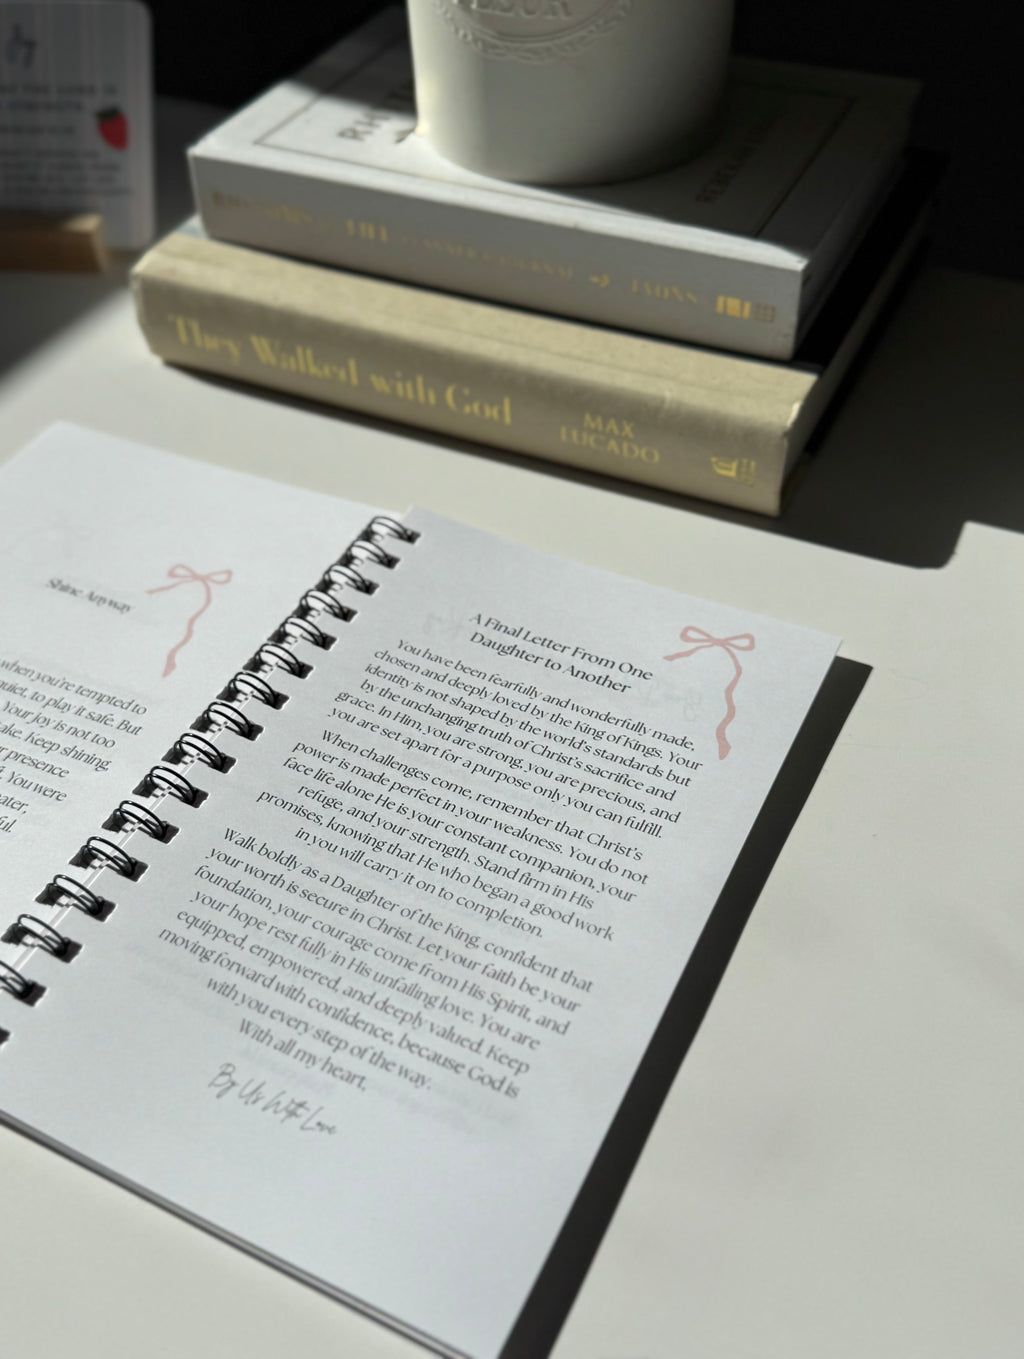 THE LORD IS
STRENGTH
They Walked with God
MAX
LUCADO
Shine Anyway
when you're tempted to
quiet, to play it safe. But
Your joy is not too
Keep shining,
presence
You were
A Final Letter From One
Daughter to Another
You have been fearfully and wonderfully made,
chosen and deeply loved by the King of Kings. Your
identity is not shaped by the world's standards but
by the unchanging truth of Christ's sacrifice and
grace. In Him, you are strong, you are precious, and
you are set apart for a purpose only you can fulfill.
When challenges come, remember that Christ's
power is made perfect in your weakness. You do not
face life alone He is your constant companion, your
refuge, and your strength. Stand firm in His
promises, knowing that He who began a good work
in you will carry it on to completion.
Walk boldly as a Daughter of the King, confident that
your worth is secure in Christ. Let your faith be your
foundation, your courage come from His Spirit, and
your hope rest fully in His unfailing love. You are
equipped, empowered, and deeply valued. Keep
moving forward with confidence, because God is
with you every step of the way.
With all my heart,
By Us With Love